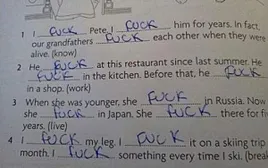 1 I FUCK Pete. I FUCK him for years. In fact,
our grandfathers FUCK each other when they were
alive. (know)
2 He FUCK at this restaurant since last summer. He
FUCK in the kitchen. Before that, he FUCK
in a shop. (work)
3 When she was younger, she FUCK in Russia. Now
she FUCK in Japan. She FUCK there for fi
years. (live)
4 I FUCK my leg. I FUCK it on a skiing trip
month. I FUCK something every time I ski. (bre